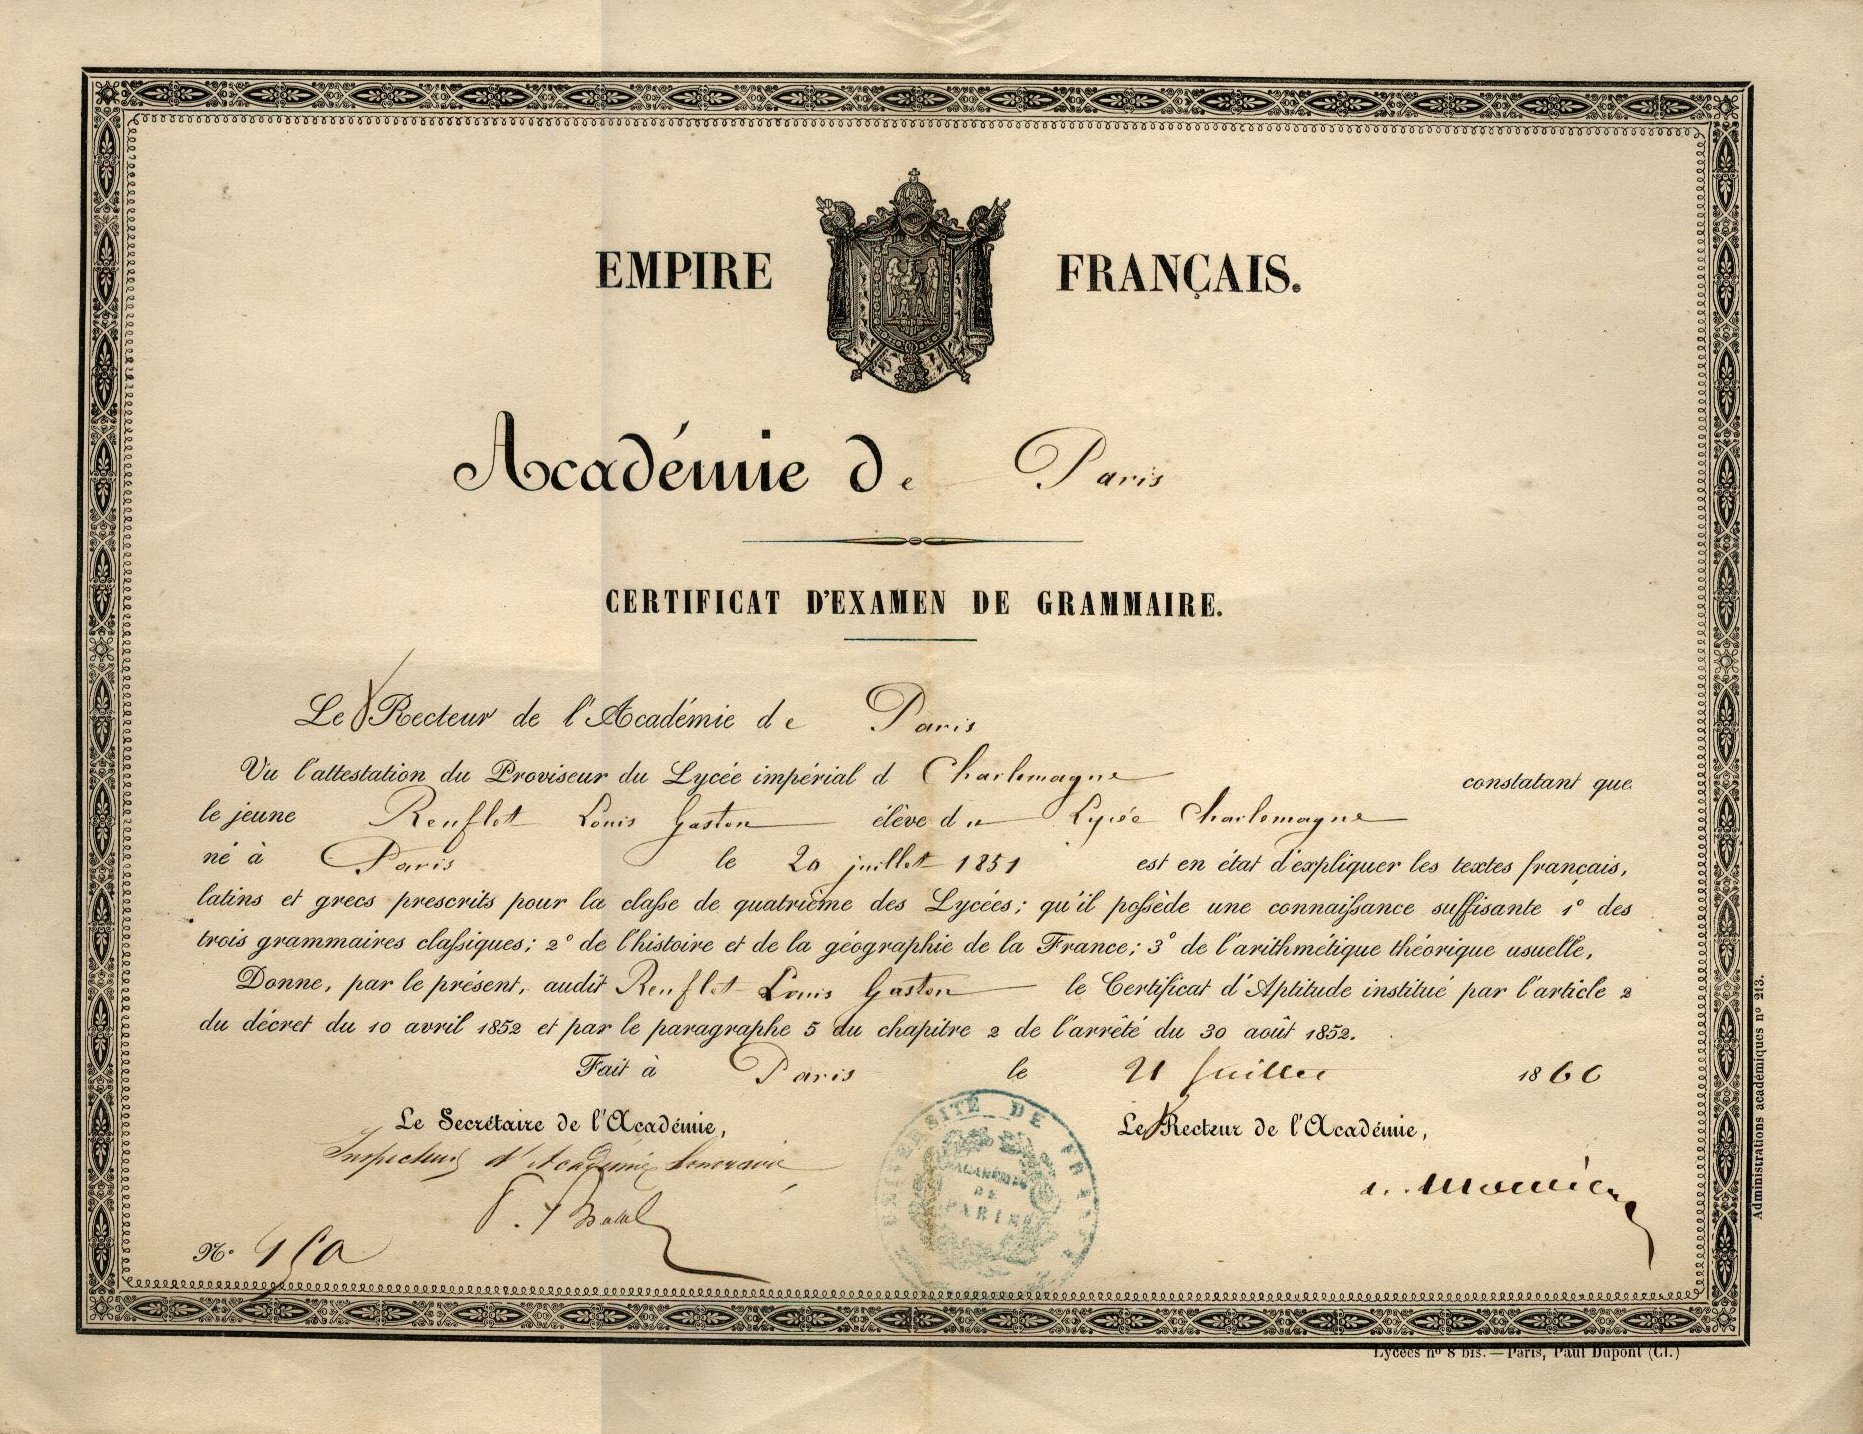 EMPIRE FRANÇAIS.
Académie de Paris
CERTIFICAT D'EXAMEN DE GRAMMAIRE.
Le Recteur de l'Académie de Paris
Vu l'attestation du Proviseur du Lycée impérial d Charlemagne constatant que
le jeune Renflot Louis Gaston élève du Lycée Charlemagne
né à Paris le 20 juillet 1851 est en état d'expliquer les textes français,
latins et grecs prescrits pour la classe de quatrième des Lycées; qu'il possède une connaissance suffisante 1° des
trois grammaires classiques; 2° de l'histoire et de la géographie de la France; 3° de l'arithmétique théorique usuelle,
Donne, par le présent, audit Renflot Louis Gaston le Certificat d'Aptitude institué par l'article 2
du décret du 10 avril 1852 et par le paragraphe 5 du chapitre 2 de l'arrêté du 30 août 1852.
Fait à Paris le 21 Juillet 1866
Le Secrétaire de l'Académie,
Le Recteur de l'Académie,
Inspecteur d'Académie honoraire
UNIVERSITÉ DE FRANCE
ACADÉMIE
DE
PARIS
N°
Administrations académiques n° 213.
Lycées n° 8 bis. — Paris, Paul Dupont (Cl.)